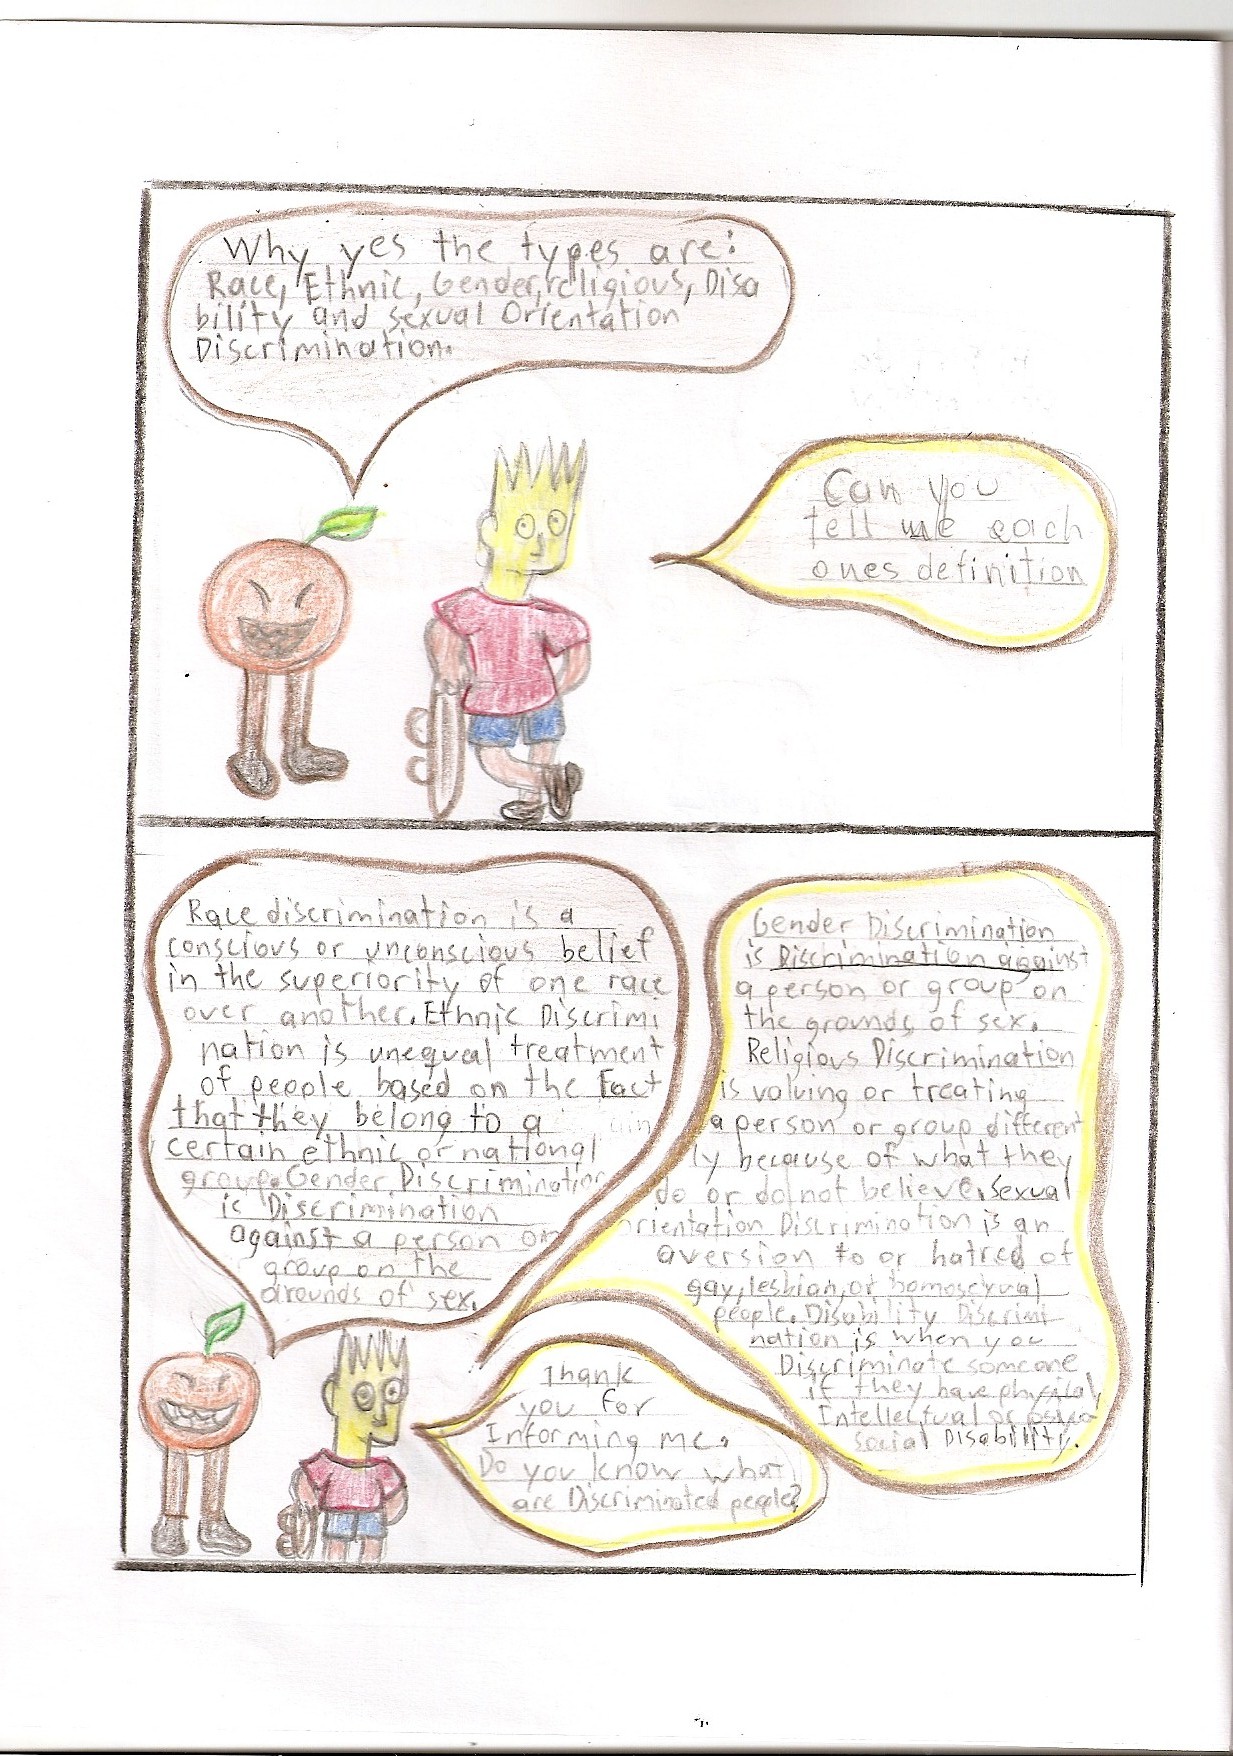 Why yes the types are:
Race, Ethnic, Gender, religious, Disa
bility and sexual Orientation
Discrimination.
Can you
tell me each
ones definition
Race discrimination is a
conscious or unconscious belief
in the superiority of one race
over another. Ethnic Discrimi
nation is unequal treatment
of people based on the fact
that they belong to a
certain ethnic or national
group. Gender Discrimination
is Discrimination
against a person or
group on the
grounds of sex.
Gender Discrimination
is Discrimination against
a person or group on
the grounds of sex.
Religious Discrimination
is valuing or treating
a person or group different
ly because of what they
do or do not believe. Sexual
orientation Discrimination is an
aversion to or hatred of
gay, lesbian, or homosexual
people. Disability Discrimi
nation is when you
Discriminate someone
if they have physical,
Intellectual or psico
social Disability.
Thank
you for
Informing me.
Do you know what
are Discriminated people?